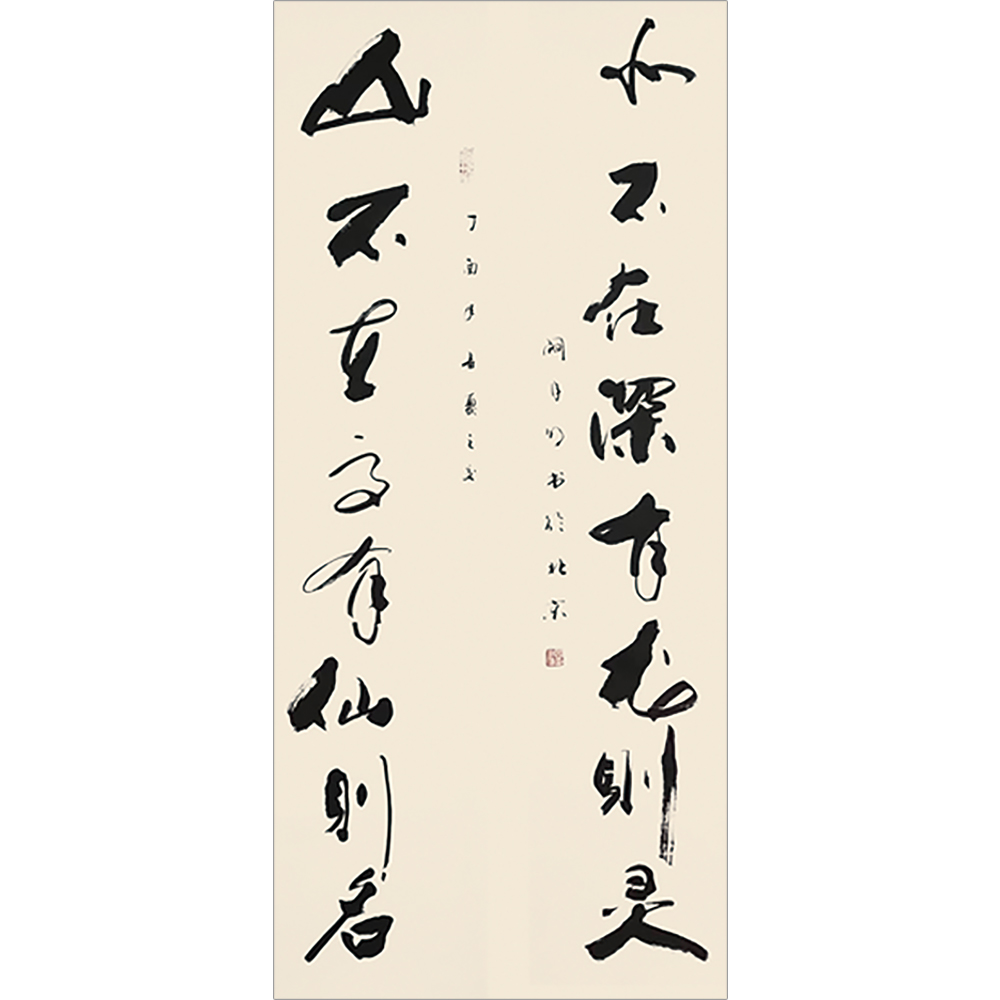 山不在高有仙则名
丁酉年夏之
书於北京
水不在深有龙则灵